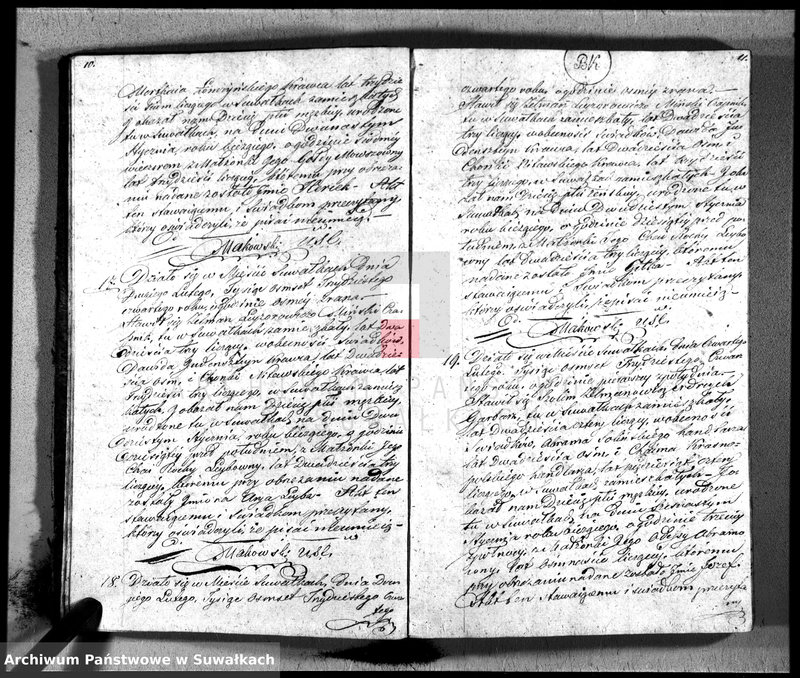 10.
Mortchaia Łomżyńskiego Krawca, lat trzydzie
ści liczącego w Suwałkach zamieszkałych
i okazał nam Dziecię płci męzkiej, urodzone
tu w Suwałkach, na dniu Dwunastym
Stycznia, roku bieżącego, o godzinie siódmej
wieczorem z Małżonki Jego
lat trzydzieści liczącej, któremu przy obrzeza
niu nadane zostało Imie - Akt
ten stawającemu i świadkom przeczytany
którzy oświadczyli, że pisać nieumieją.
Makowski U.S.C.
17. Działo się w Mieście Suwałkach, Dnia
Drugiego Lutego, Tysiąc ośmset Trzydziestego
czwartego roku, o godzinie osmej zrana.
Stawił się Zelman Leyzorowicz Miński Cza
pnik, tu w Suwałkach zamieszkały, lat Dwa
dzieścia trzy liczący, w obecności świadków,
Dawida Judensztyn Krawca, lat Dwadzieś
cia ośm, i Chonki Pilawskiego Krawca, lat
trzydzieści trzy liczącego, w Suwałkach zamiesz
kałych, i okazał nam Dziecię płci męzkiej,
urodzone tu w Suwałkach, na dniu Dwu
dziestym Stycznia, roku bieżącego, o godzinie
dziesiątej przed południem, z Małżonki Jego
Chai Rochy Leybowny, lat Dwadzieścia trzy
liczącej, któremu przy obrzezaniu nadane
zostały Imiona - Akt ten
stawającemu i świadkom przeczytany,
którzy oświadczyli, że pisać nieumieją -
Makowski U.S.C.
18. Działo się w Mieście Suwałkach, Dnia Dru
giego Lutego, Tysiąc ośmset Trzydziestego czwar
tego
BK
11.
czwartego roku, o godzinie osmej zrana. -
Stawił się Zelman Leyzorowicz Miński Czapnik
tu w Suwałkach zamieszkały, lat Dwadzieścia
trzy liczący, w obecności świadków Dawida Ju
densztyn Krawca, lat Dwadzieścia ośm i
Chonki Pilawskiego Krawca, lat trzydzieści
trzy liczącego, w Suwałkach zamieszkałych, i oka
zał nam Dziecię płci żeńskiej, urodzone tu w
Suwałkach, na dniu Dwudziestym Stycznia
roku bieżącego, o godzinie dziesiątej przed po
łudniem, z Małżonki Jego Chai Rochy Leybo
wny, lat Dwadzieścia trzy liczącej, któremu
nadane zostało Imie Gitka - Akt ten
stawającemu i świadkom przeczytany
którzy oświadczyli że pisać nieumieją -
Makowski U.S.C.
19. Działo się w Mieście Suwałkach, Dnia Czwartego
Lutego Tysiąc ośmset Trzydziestego Czwar
tego roku, o godzinie pierwszej z południa -
Stawił się Szolim Zelmanowicz
Garbarz, tu w Suwałkach zamieszkały
lat Dwadzieścia cztery liczący, w obecności
świadków, Abrama Handlarza
lat Dwadzieścia ośm i Chaima Krasno
polskiego handlarza, lat pięćdziesiąt cztery
liczącego, w Suwałkach zamieszkałych - i o
kazał nam Dziecię płci męzkiej, urodzone
tu w Suwałkach, na dniu
Stycznia roku bieżącego, o godzinie trzeciej
z Małżonki Jego Abramo
wny, lat liczącej, któremu
przy obrzezaniu nadane zostało Imie Jozef
Akt ten stawającemu i świadkom przeczyta
ny
Archiwum Państwowe w Suwałkach